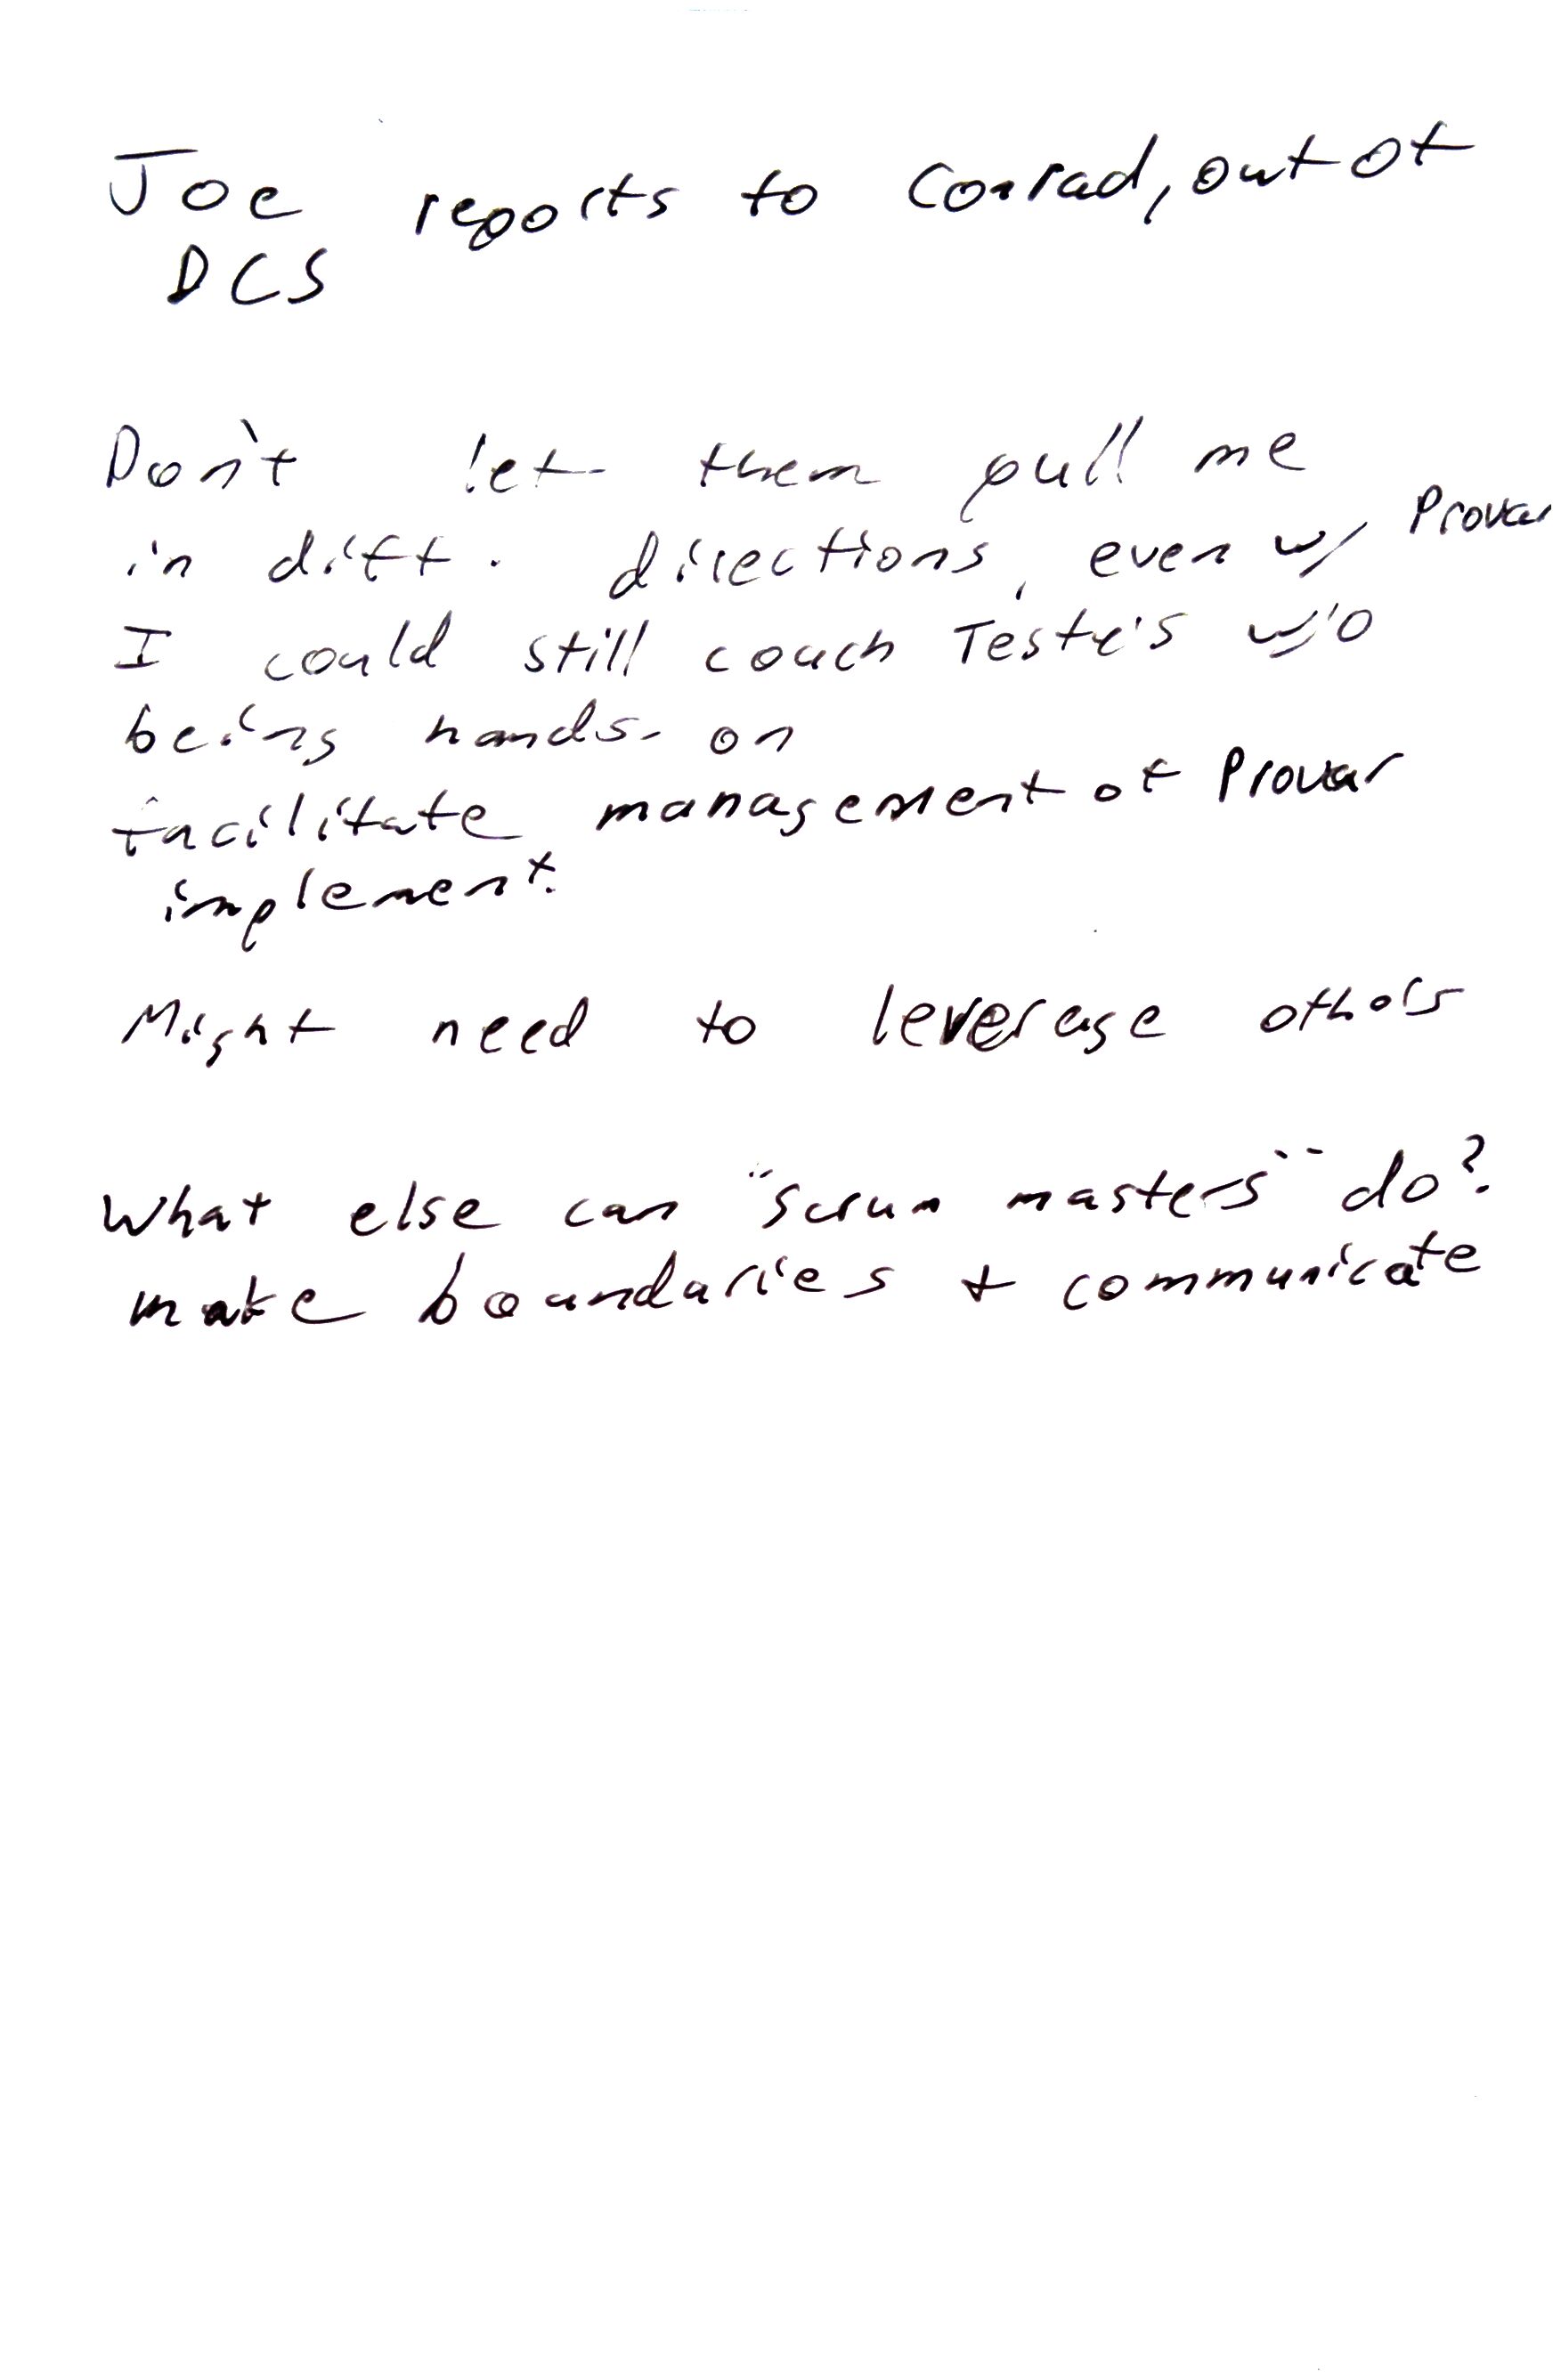 Joe reports to Conrad, out of
DCS
Don't let them pull me
in diff. directions, even w/ Provar
I could still coach Testers w/o
being hands-on
facilitate management of Provar
implement.
Might need to leverage others
What else can "scrum masters" do?
make boundaries + communicate